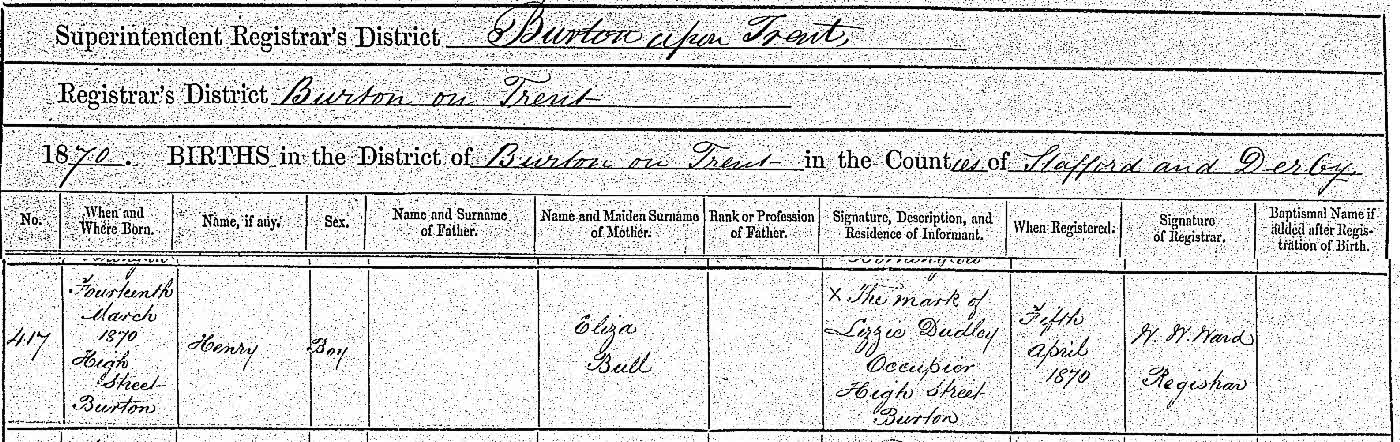 Superintendent Registrar's District Burton upon Trent
Registrar's District Burton on Trent
1870. BIRTHS in the District of Burton on Trent in the Counties of Stafford and Derby
No.
When and
Where Born.
Name, if any.
Sex.
Name and Surname
of Father.
Name and Maiden Surname
of Mother.
Rank or Profession
of Father.
Signature, Description, and
Residence of Informant.
When Registered.
Signature
of Registrar.
Baptismal Name if
added after Regis-
tration of Birth.
417
Fourteenth
March
1870
High
Street
Burton
Henry
Boy
Eliza
Bull
X The mark of
Lizzie Dudley
Occupier
High Street
Burton
Fifth
April
1870
W. W. Ward
Registrar